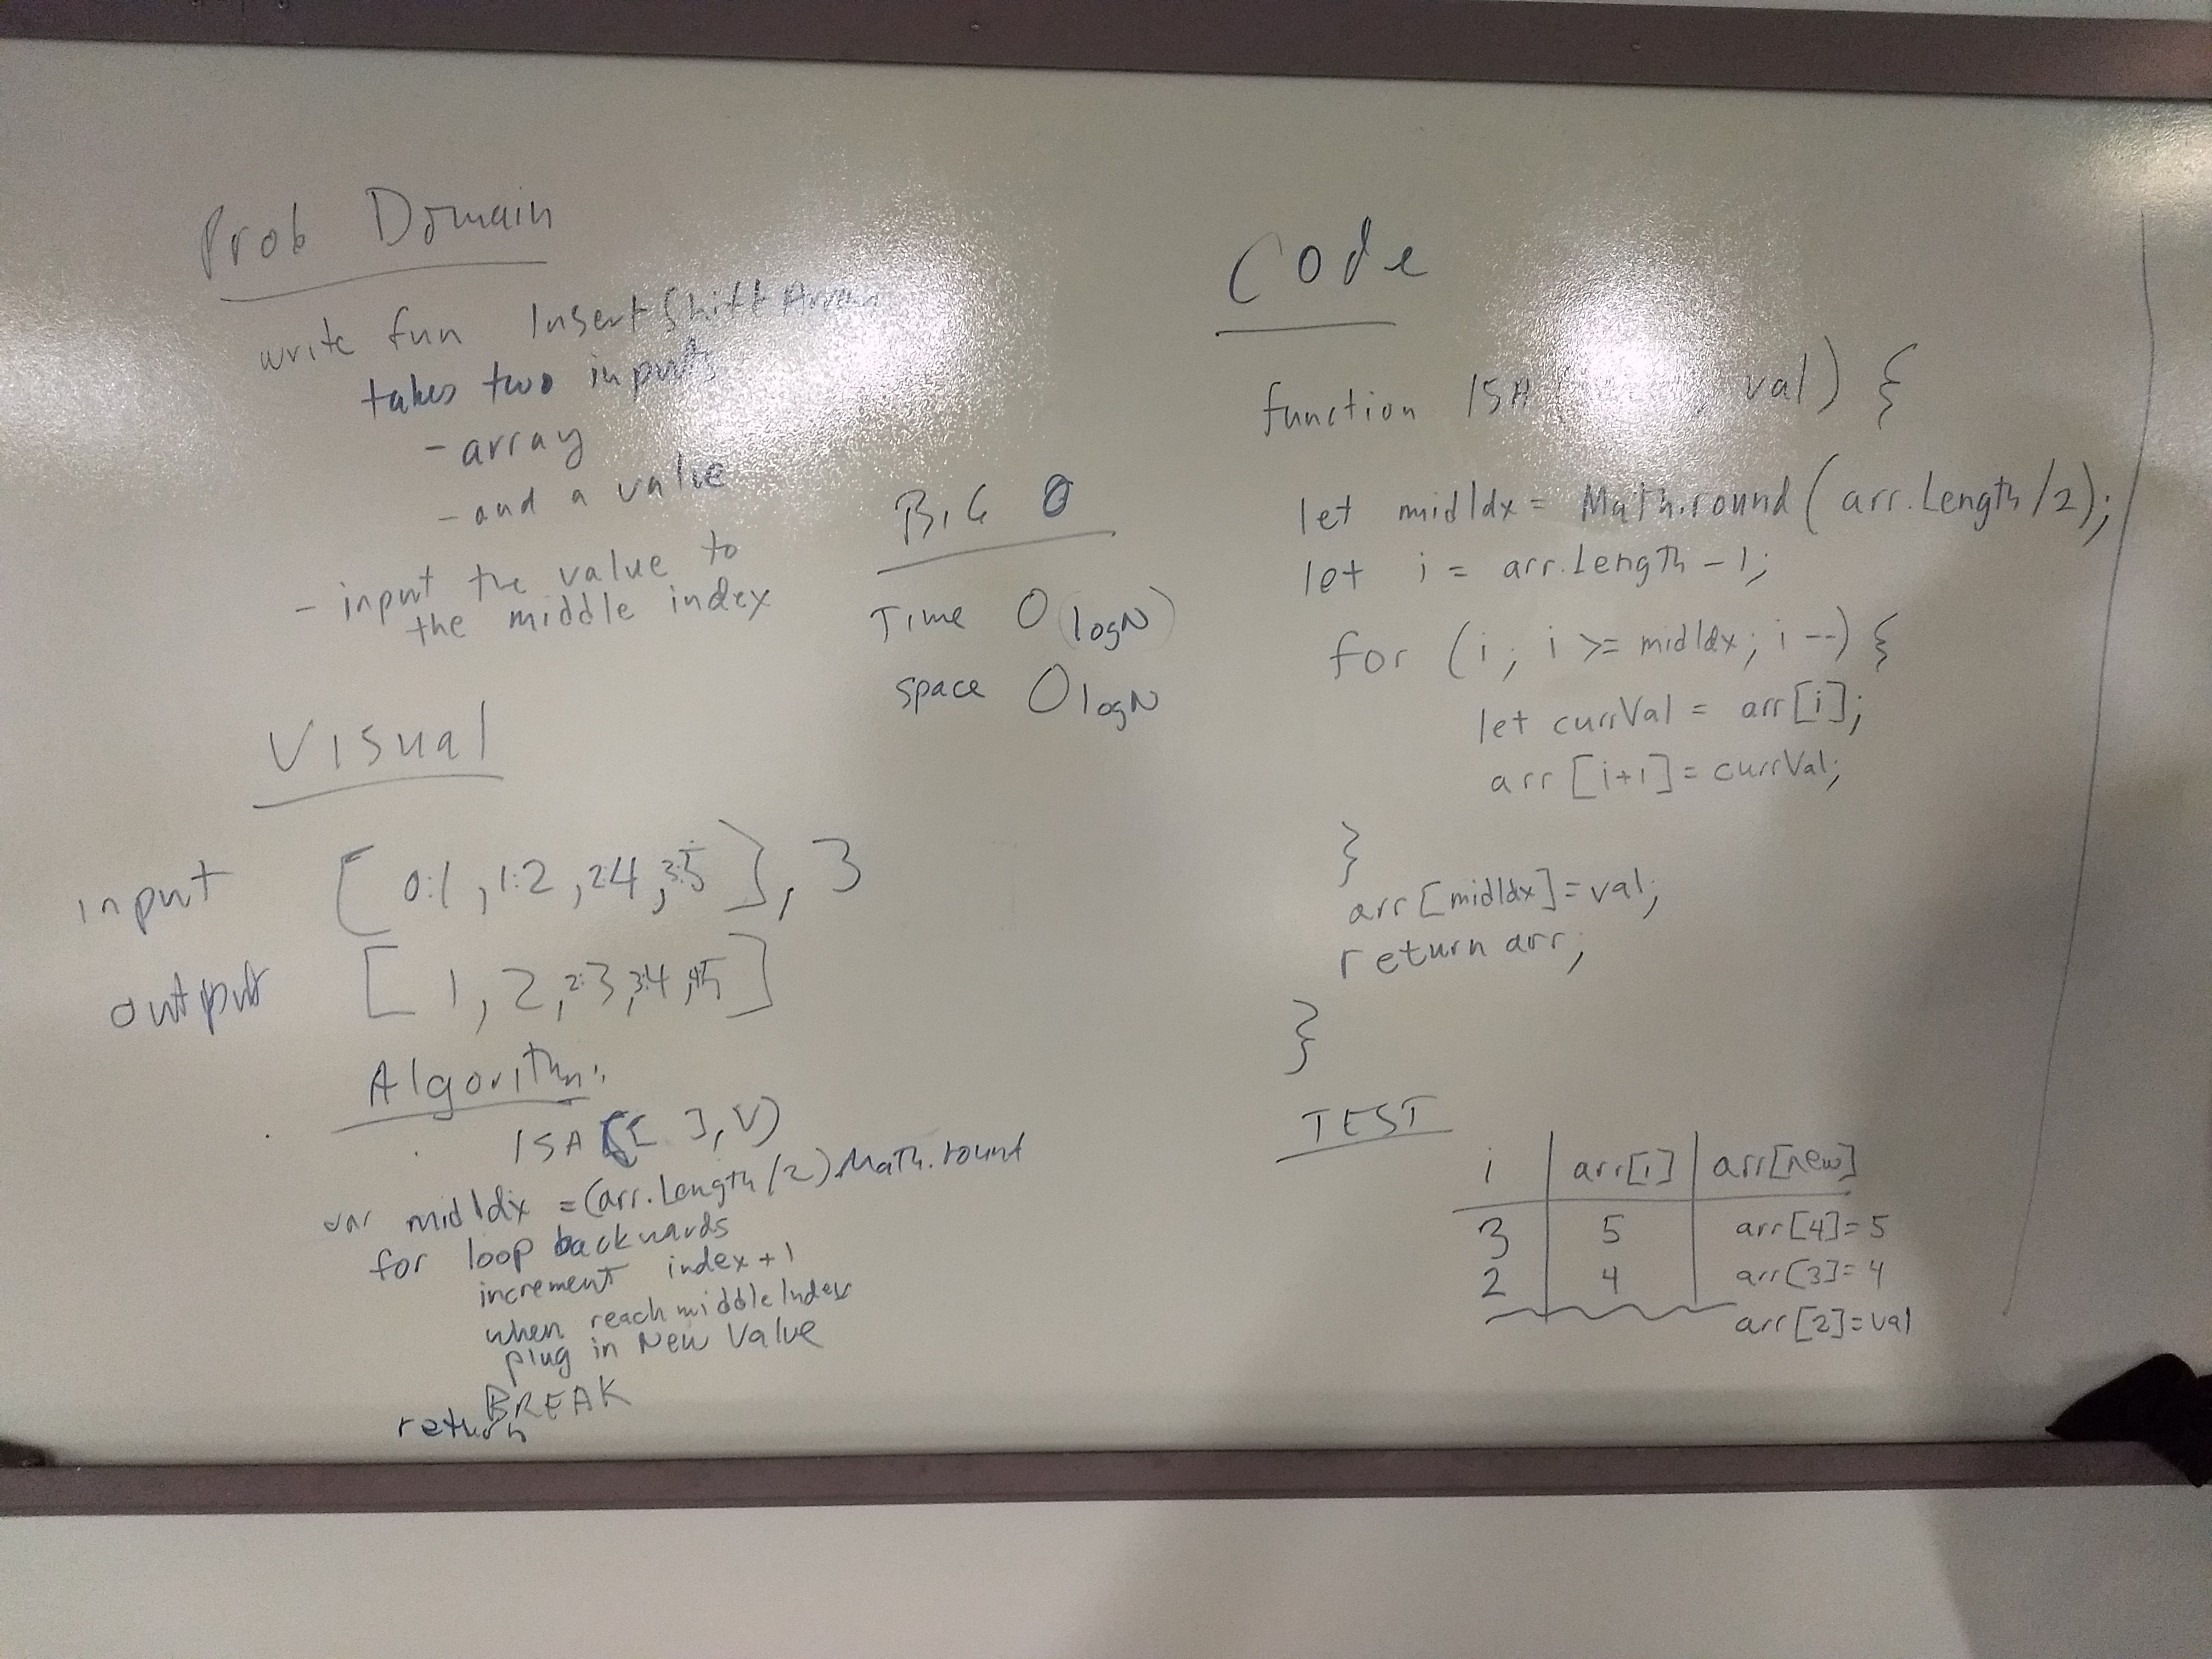 Prob Domain
write fun InsertShiftArray
takes two inputs
- array
- and a value
- input the value to
the middle index
BIG O
Time O(logN)
space O logN
Visual
input [ 0:1 , 1:2 , 2:4 , 3:5 ], 3
output [ 1, 2, 2:3, 3:4, 4:5 ]
Algorithm:
ISA ([ ], V)
var midIdx = (arr.Length/2).Math.round
for loop backwards
increment index + 1
when reach middle Index
plug in New Value
BREAK
return
Code
function ISA ( val) {
let midIdx = Math.round( arr.Length/2);
let i = arr.Length - 1;
for (i; i >= midIdx; i --) {
let currVal = arr[i];
arr [i+1] = currVal;
}
arr [midIdx] = val;
return arr;
}
TEST
i arr[i] arr[new]
3 5 arr[4]=5
2 4 arr[3]=4
arr[2]=val